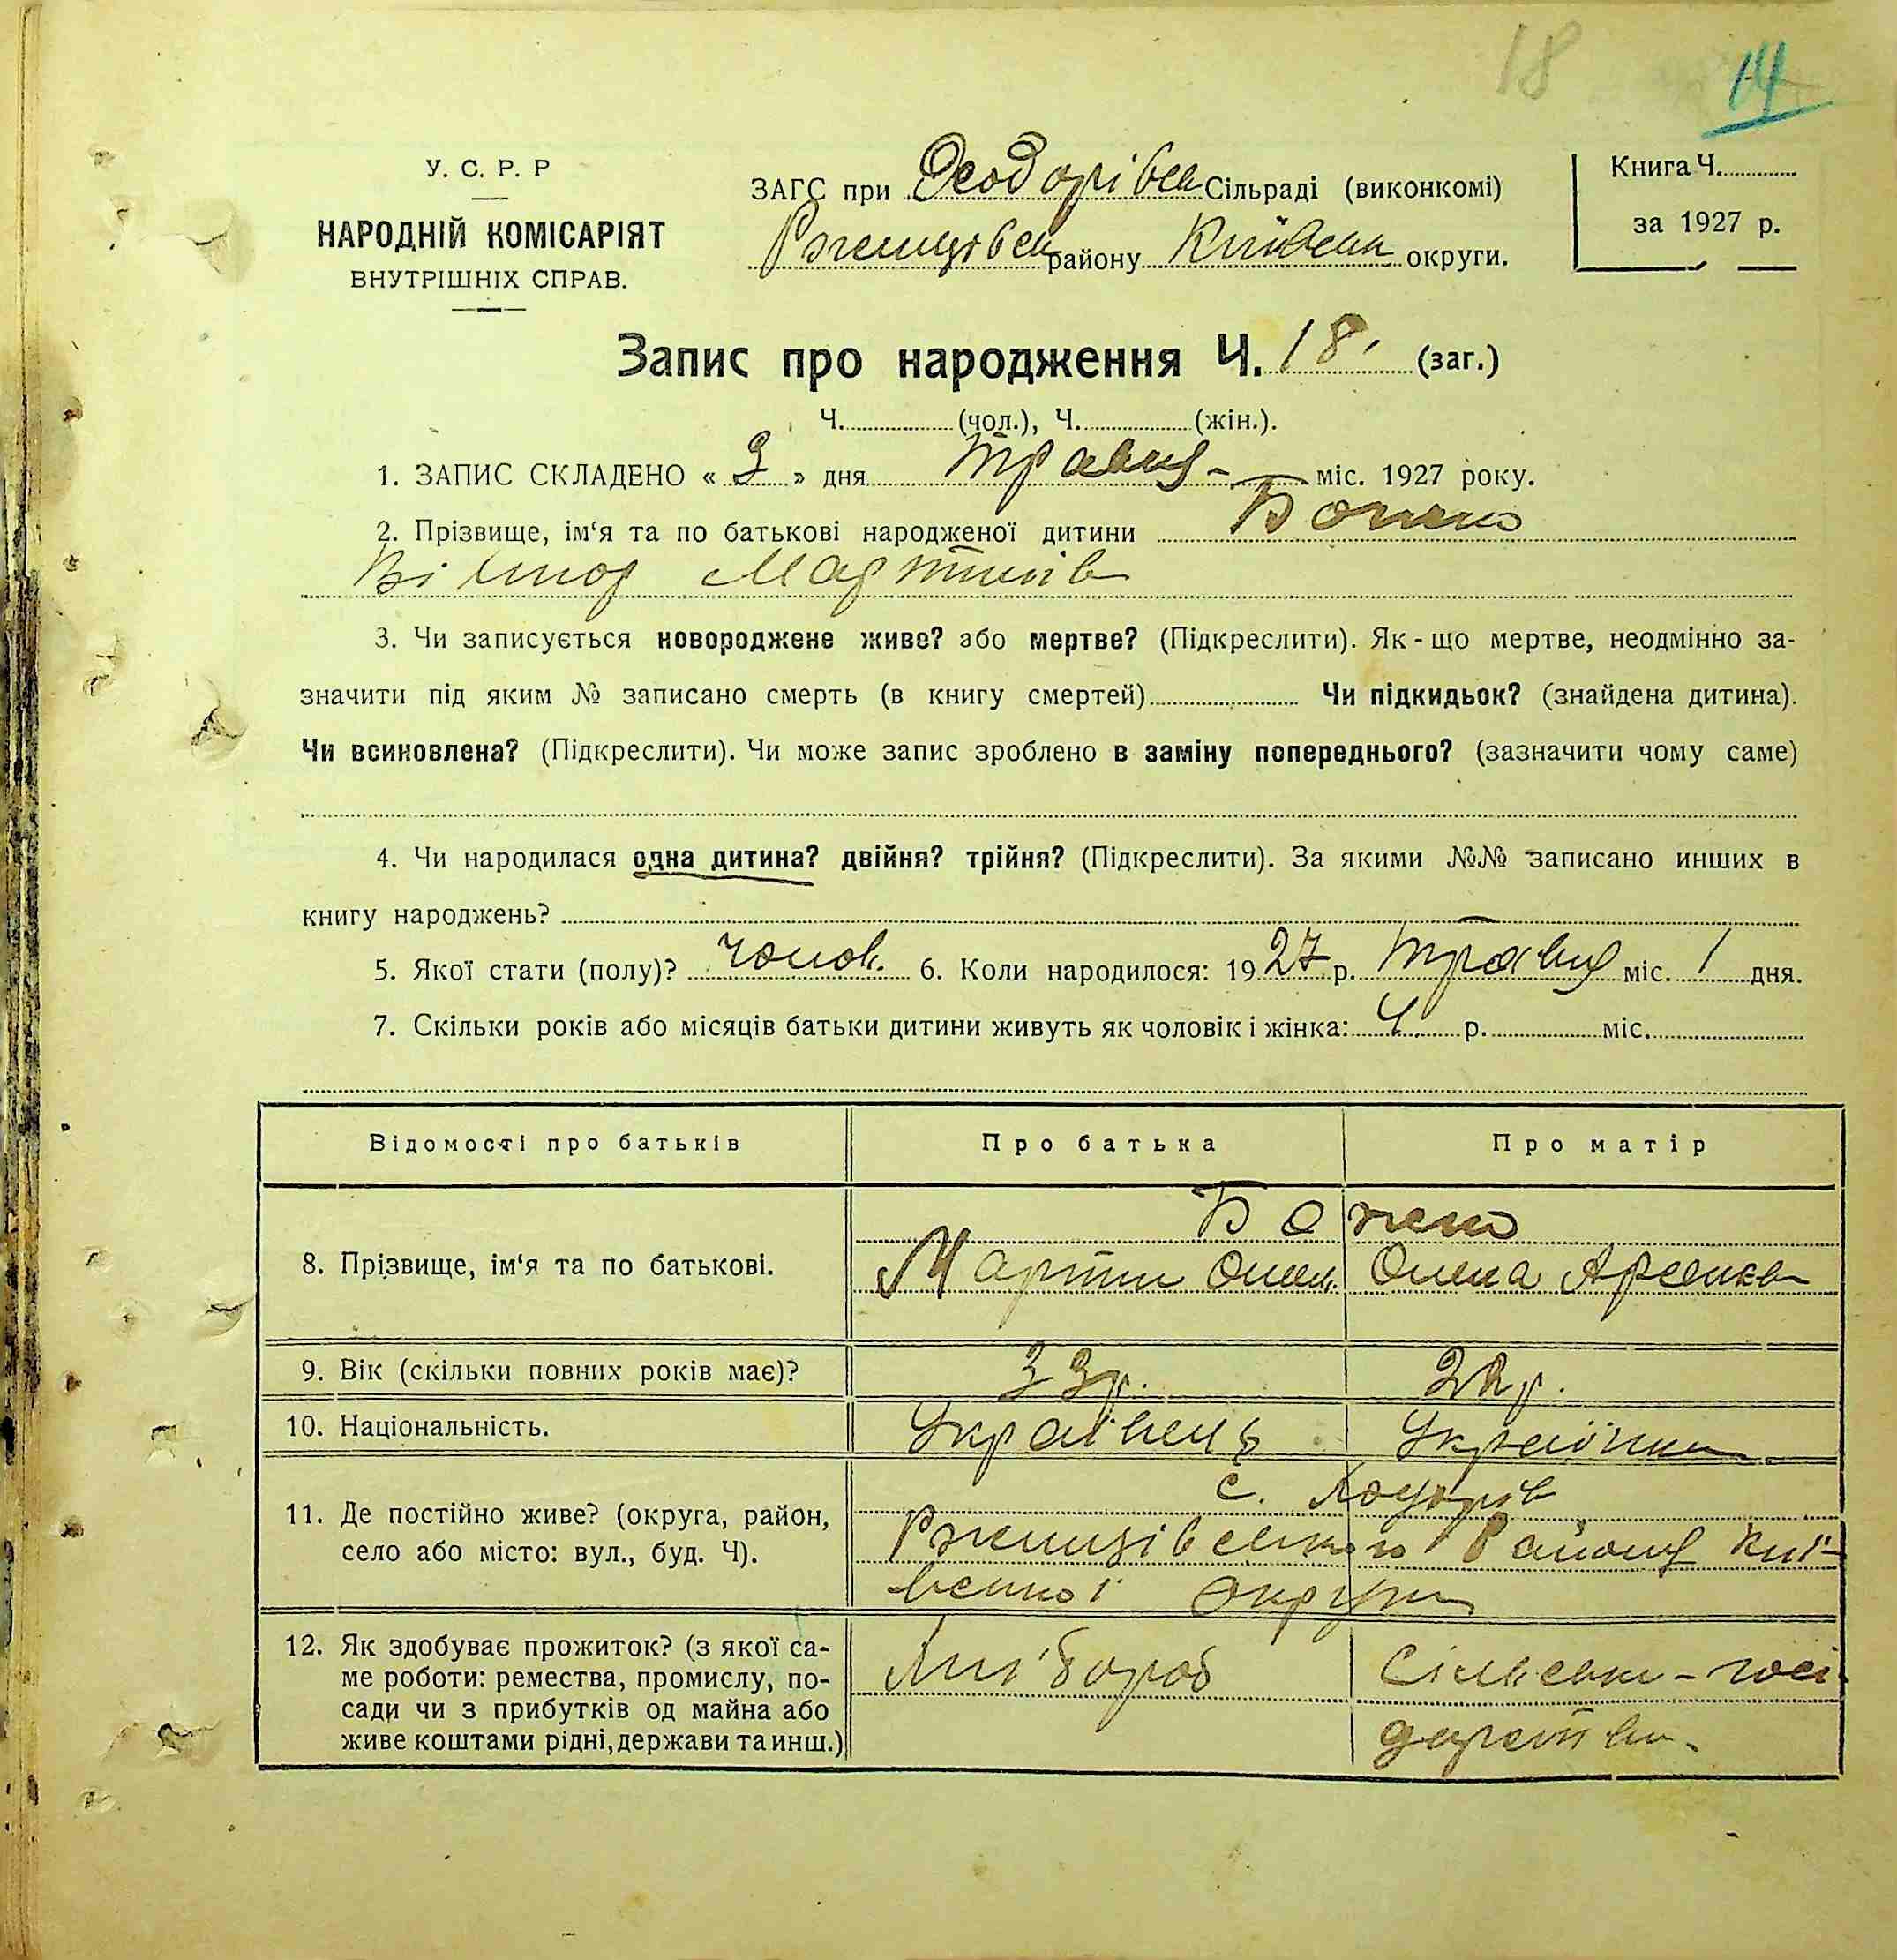 18 14
У. С. Р. Р
НАРОДНІЙ КОМІСАРІЯТ
ВНУТРІШНІХ СПРАВ.
ЗАГС при Сільраді (виконкомі)
району округи.
Книга Ч.
за 1927 р.
Запис про народження Ч. 18. (заг.)
Ч. (чол.), Ч. (жін.).
1. ЗАПИС СКЛАДЕНО « 3 » дня травця міс. 1927 року.
2. Прізвище, ім‘я та по батькові народженої дитини
Віктор Мартинів
3. Чи записується новороджене живе? або мертве? (Підкреслити). Як-що мертве, неодмінно за-
значити під яким № записано смерть (в книгу смертей) Чи підкидьок? (знайдена дитина).
Чи всиновлена? (Підкреслити). Чи може запис зроблено в заміну попереднього? (зазначити чому саме)
4. Чи народилася одна дитина? двійня? трійня? (Підкреслити). За якими №№ записано инших в
книгу народжень?
5. Якої стати (полу)? чолов. 6. Коли народилося: 1927 р. травця міс. 1 дня.
7. Скільки років або місяців батьки дитини живуть як чоловік і жінка: 4 р. міс.
Відомості про батьків Про батька Про матір
8. Прізвище, ім‘я та по батькові.
Мартин Олена
9. Вік (скільки повних років має)? 33р.
10. Національність. Українець Українка
11. Де постійно живе? (округа, район,
село або місто: вул., буд. Ч).
с.
Ржищівського Району Киї-
вської округи
12. Як здобуває прожиток? (з якої са-
ме роботи: ремества, промислу, по-
сади чи з прибутків од майна або
живе коштами рідні, держави та инш.)
Хлібороб